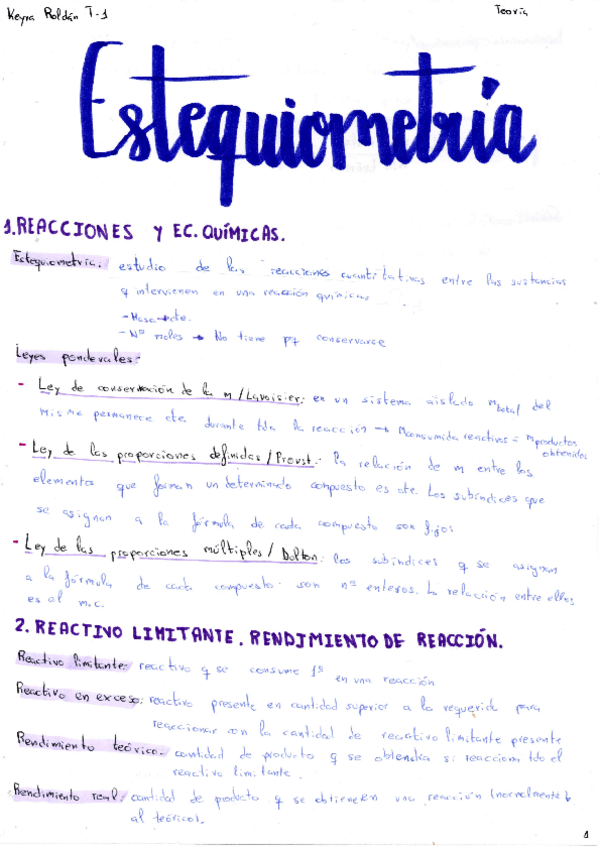 Keyra Roldán T-1
Teoría
Estequiometría
1.REACCIONES Y EC. QUÍMICAS.
Estequiometría: estudio de las reacciones cuantitativas entre las sustancias
q intervienen en una reacción química
- Masa → cte.
- Nº moles → No tiene pq conservarse
Leyes ponderales:
- Ley de conservación de la m / Lavoisier: en un sistema aislado mtotal del
misma permanece cte. durante tda la reacción → mconsumida reactivos = mproductos
obtenidos
- Ley de las proporciones definidas / Proust: la relación de m entre los
elementos que forman un determinado compuesto es cte. Los subíndices que
se asignan a la fórmula de cada compuesto son fijos
- Ley de las proporciones múltiples / Dalton: los subíndices q se asignan
a la fórmula de cada compuesto son nº enteros. La relación entre ellos
es al m.c.
2. REACTIVO LIMITANTE. RENDIMIENTO DE REACCIÓN.
Reactivo limitante: reactivo q se consume 1º en una reacción
Reactivo en exceso: reactivo presente en cantidad superior a la requerida para
reaccionar con la cantidad de reactivo limitante presente
Rendimiento teórico: cantidad de producto q se obtendría si reacciona tdo el
reactivo limitante.
Rendimiento real: cantidad de producto q se obtiene en una reacción (normalmente ↓
al teórico).
1